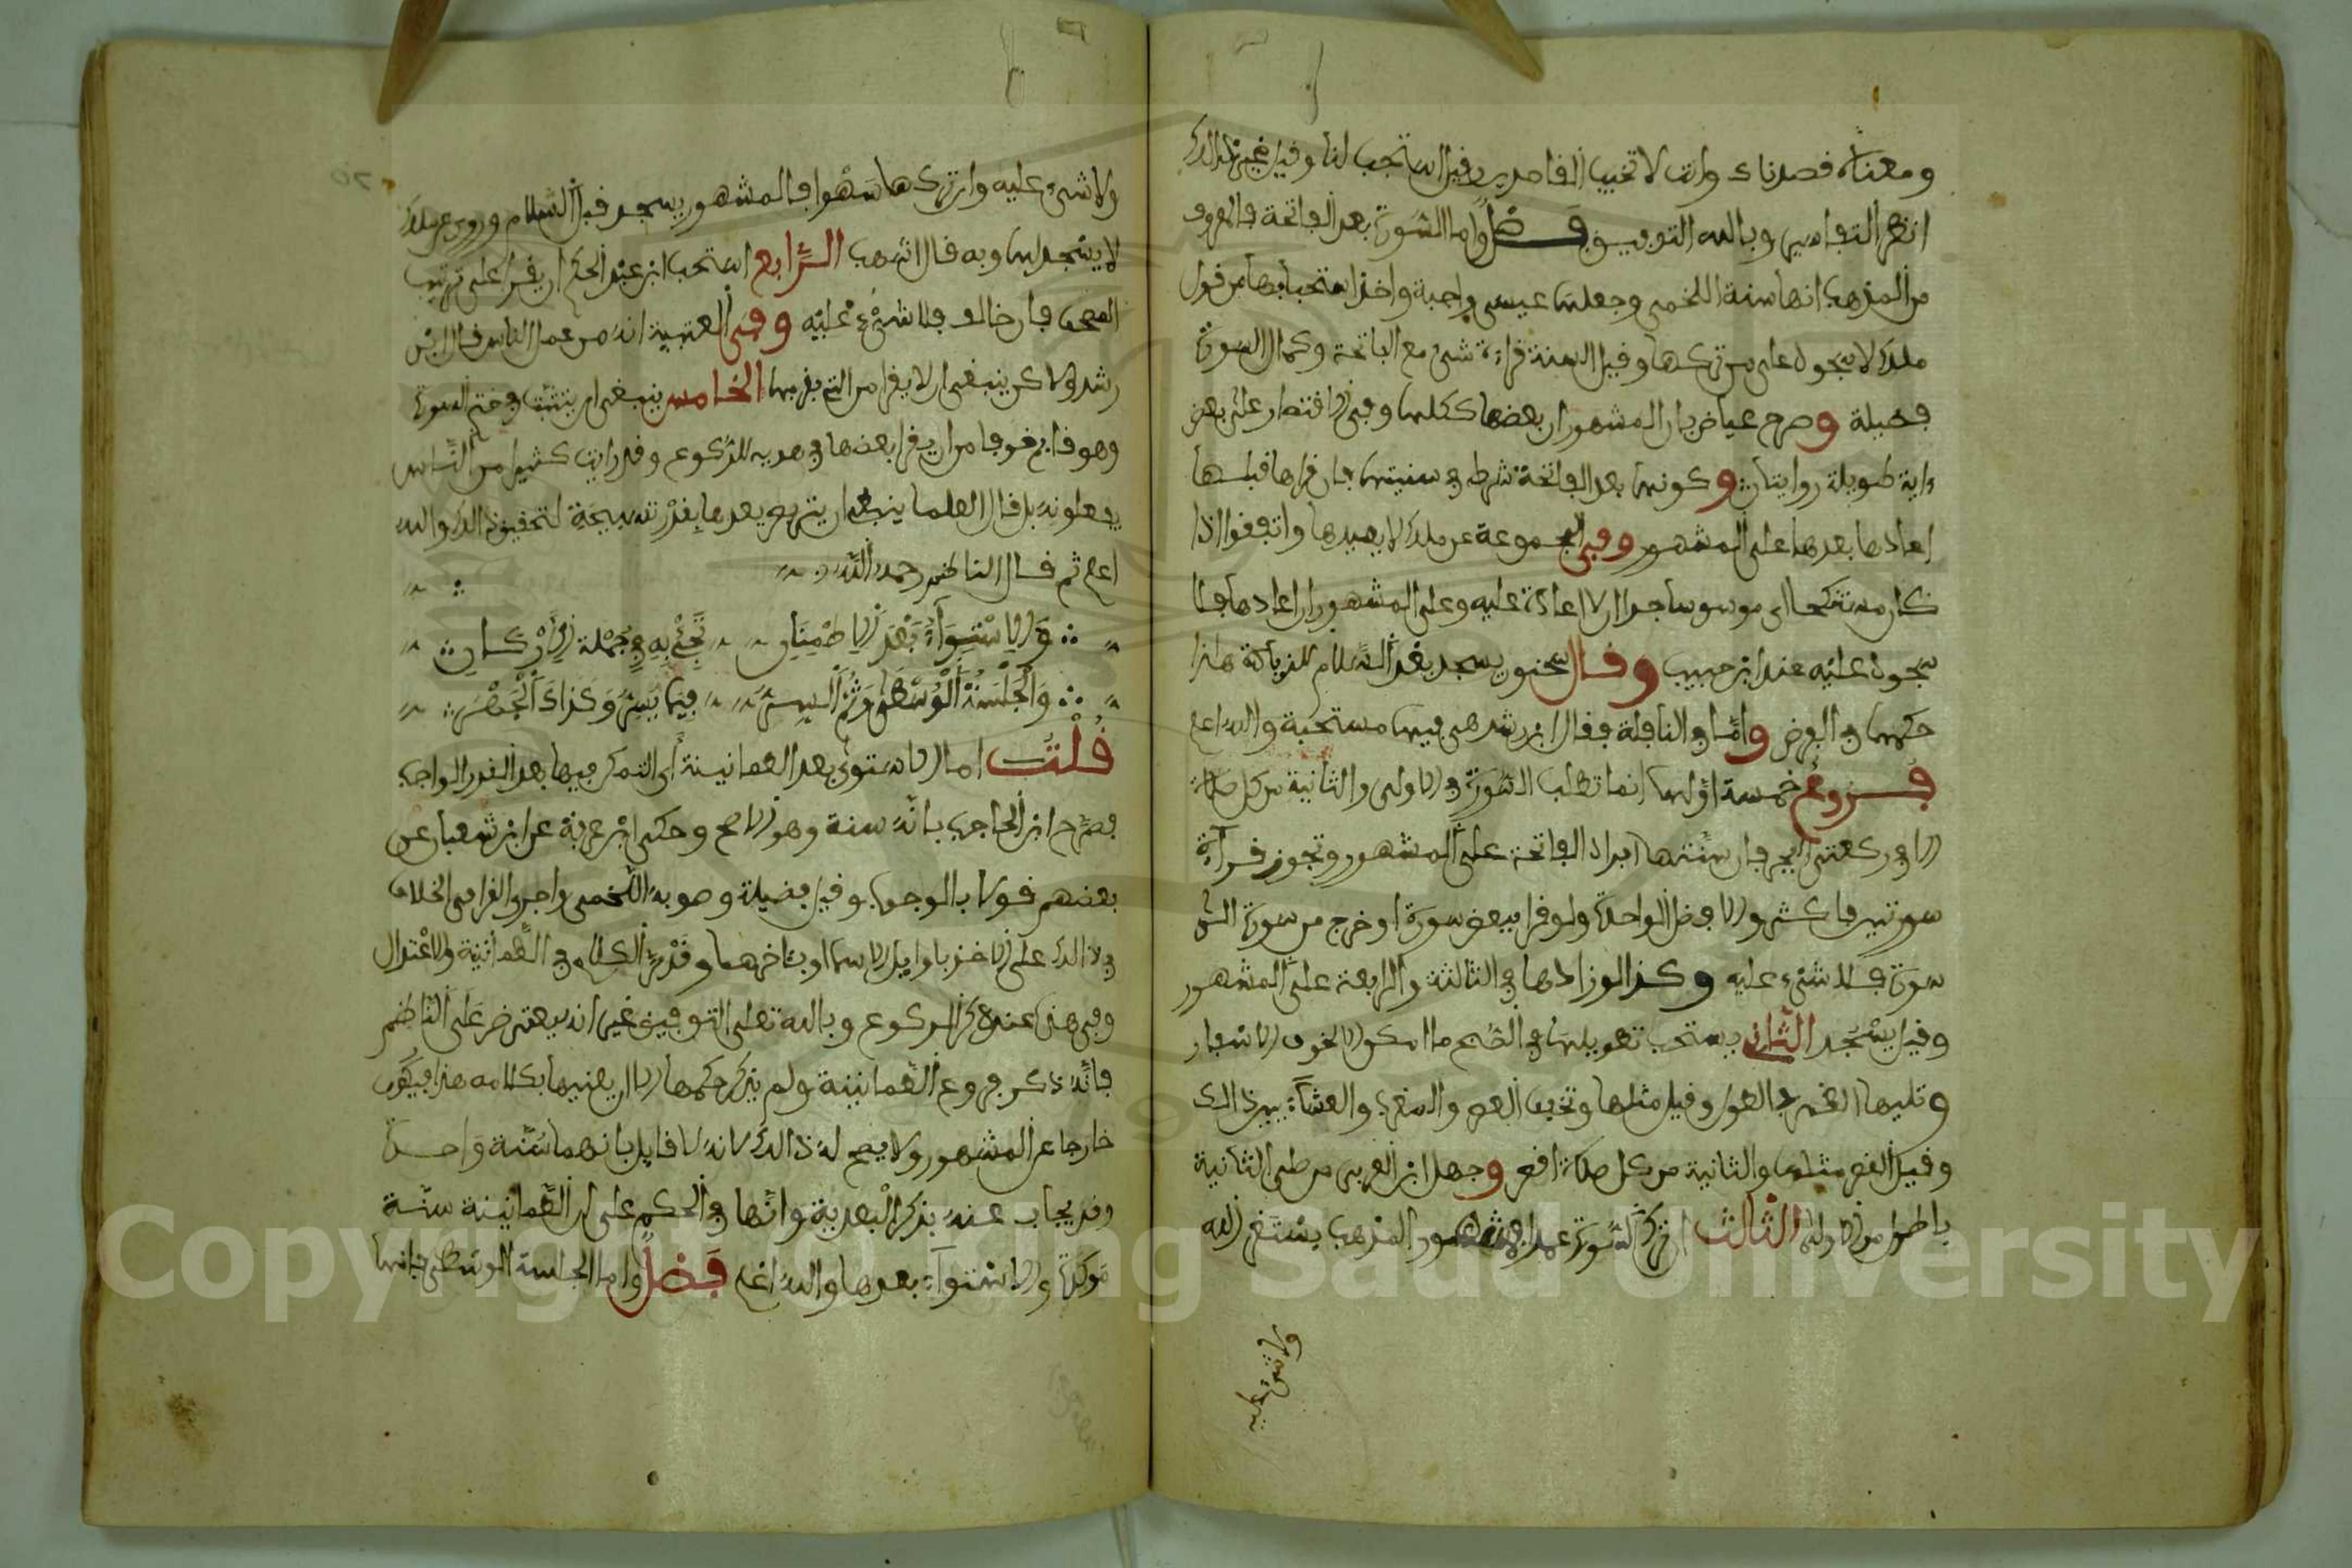 ومعناه قصدناك وانت لا تخيب القاصدين وقيل استجب لنا وقيل غير ذلك
انظر التفاسير وبالله التوفيق فصل واما السورة بعد الفاتحة فالمعروف
من المذهب انها سنة اللخمي وجعلها عيسى واجبة واخذ استحبابها من قول
ملك لا سجود على من تركها وقيل السنة قراءة شيء مع الفاتحة وكمال السورة
فضيلة وصرح عياض بان المشهور ان بعضها ككلها وفي الاقتصار على بعض
ءاية طويلة روايتان وكونها بعد الفاتحة شرط في سنيتها فان قراها قبلها
اعادها بعدها على المشهور وفي المجموعة عن ملك لا يعيدها واتفقوا اذا
كان مستنكحا اي موسوسا جدا ان لا اعادة عليه وعلى المشهور ان اعادها فلا
سجود عليه عند ابن حبيب وقال سحنون يسجد بعد السلام للزيادة هذا
حكمها في الفرض واما في النافلة فقال ابن رشد هي فيها مستحبة والله اعلم
فروع خمسة اولها انما تطلب السورة في الاولى والثانية من كل صلاة
الا في ركعتي الفجر فان سنتها افراد الفاتحة على المشهور وتجوز قراءة
سورتين فاكثر والافضل الواحدة ولو قرا ببعض سورة او خرج من سورة الى
سورة فلا شيء عليه وكذا لو زادها في الثالثة والرابعة على المشهور
وقيل يسجد الثاني يستحب تطويلها في الصبح ما امكن الا لخوف الاسفار
وتليها الظهر في الطول وقيل مثلها وتخفف العصر والمغرب والعشاء بين ذلك
وقيل العصر مثلها والثانية من كل صلاة اقصر وجهل ابن العربي من صلى الثانية
باطول من الاولى الثالث ان ترك السورة عمدا فمشهور المذهب يستغفر الله
ولا شيء عليه
ولا شيء عليه وان تركها سهوا فالمشهور يسجد قبل السلام وروي عن ملك
لا يسجد لها وبه قال اشهب الرابع استحب ابن عبد الحكم ان يقرا على ترتيب
المصحف فان خالف فلا شيء عليه وفي العتبية انه من عمل الناس قال ابن
رشد ولاكن ينبغي ان لا يقرا من التي يقربها الخامس ينبغي ان يتثبت في ختم السورة
وهو قايم خوفا من ان يقرا بعضها في هويه للركوع وقد رايت كثيرا من الناس
يفعلونه بل قال العلما ينبغي ان يتربص بعدها بقدر تسبيحة لتحقيق ذلك والله
اعلم ثم قال الناظم رحمه الله
والاستواء بعد الاطمنان تجئ به في جملة الاركان
والجلسة الوسطى وثم السر فيما يسر وكذاك الجهر
قلت اما الاستوى بعد الطمانينة أي التمكن فيها بعد القدر الواجب
فصرح ابن الحاجب بانه سنة وهو الاصح وحكى ابن عرفة عن ابن شعبان عن
بعضهم قولا بالوجوب وقيل فضيلة وصوبه اللخمي واجرى القرافي الخلاف
في ذلك على الاخذ باوايل الاسما او بثاخرها وقد مر الكلام في الطمانينة والاعتدال
وفي هذا عند ذكر الركوع وبالله تعلى التوفيق غير انه يعترض على الناظم
فانه ذكر فروع الطمانينة ولم يذكر حكمها الا ان يعنيها بكلامه هذا فيكون
خارجا عن المشهور ولا يصح له ذلك لانه لا قايل بانهما سنة واحدة
وقد يجاب عنه بذكر البعدية وانها في الحكم على ان الطمانينة سنة
موكدة والاستواء بعدها والله اعلم فصل واما الجلسة الوسطى فانها
Copyright © King Saud University